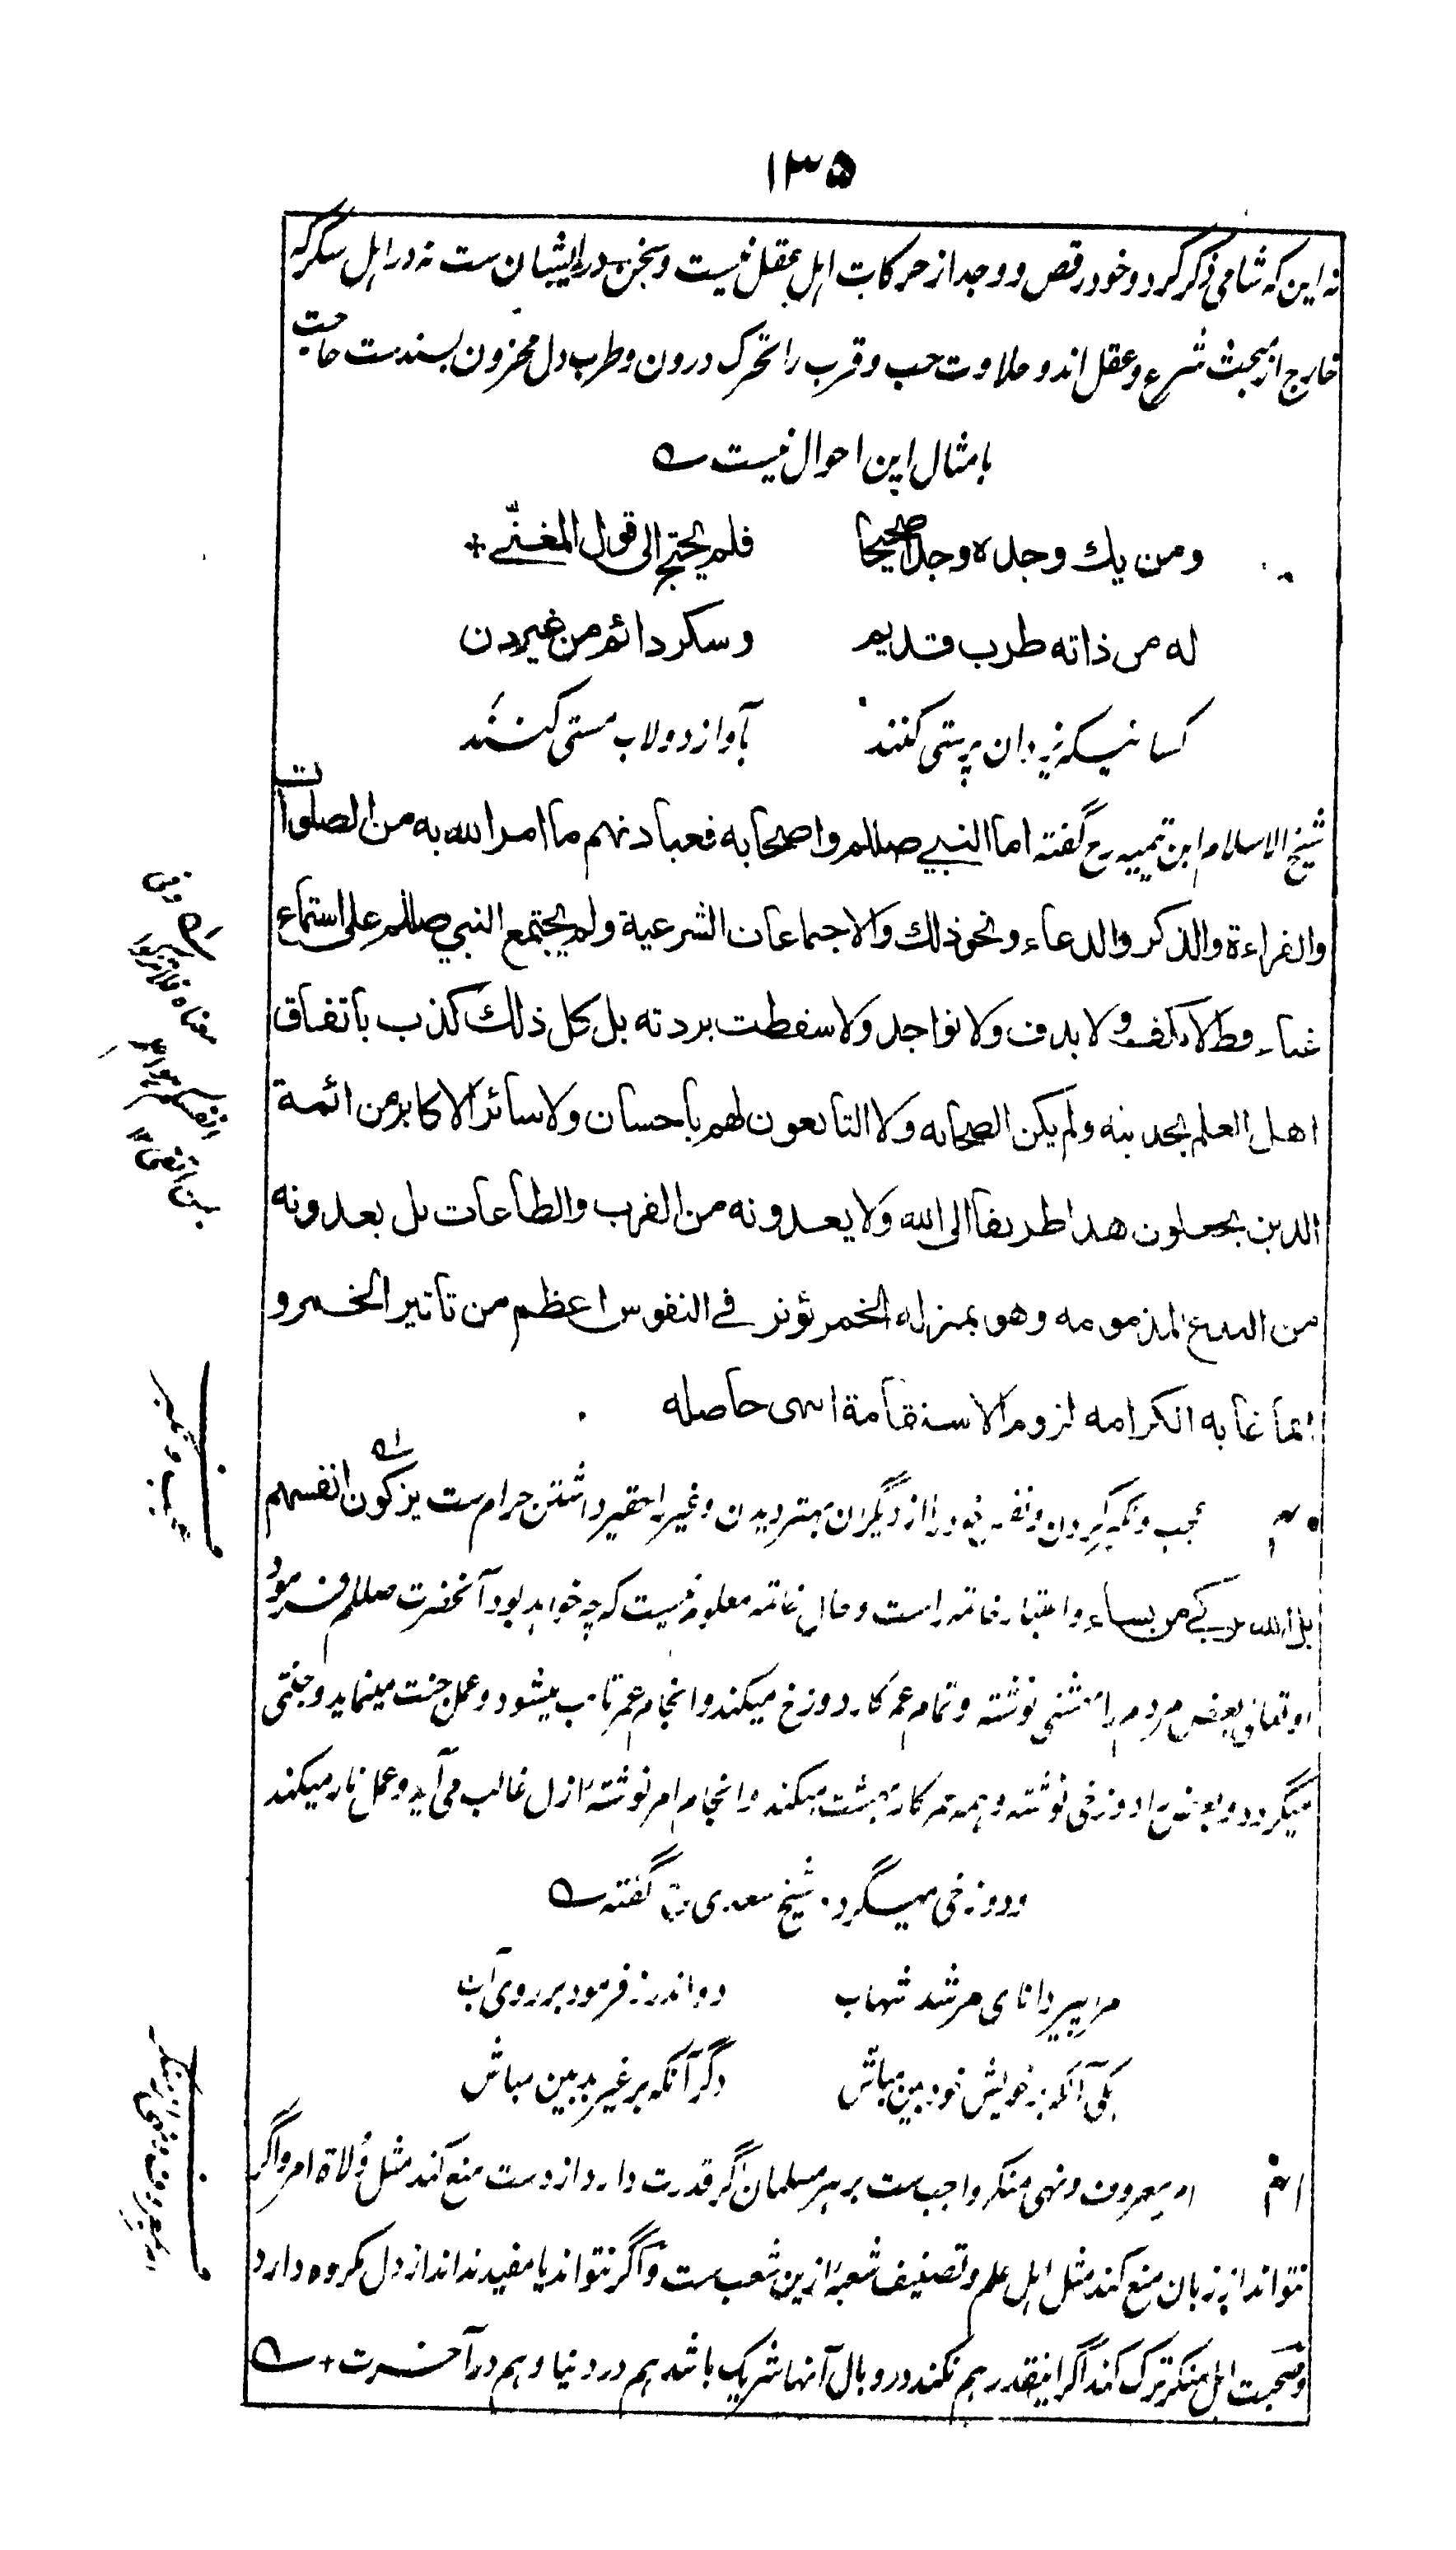 ۱۳۵
نه این که شامی ذکر کرد و خود رقص و وجد از حرکات اهل عقل نیست و سخن در ایشان ست نه در اهل سکر که
خارج از مبحث شرع و عقل اند و حلاوت حب و قرب را تحرک درون و طرب دل محزون بسندست حاجت
بامثال این احوال نیست ؎
ومن يك وجده وجدا صحيحا فلم يحتج الى قول المغنّے +
له من ذاته طرب قديم وسكر دائم من غير دن
کسانیکه یزدان پرستی کنند بآواز دولاب مستی کنند
شیخ الاسلام ابن تیمیه رح گفته اما النبي صللم واصحابه فعبادتهم ما امر الله به من الصلوات
والقراءة والذكر والدعاء ونحو ذلك والاجتماعات الشرعية ولم يجتمع النبي صللم على استماع
غناء قط لا بكف ولا بدف ولا تواجد ولا سقطت بردته بل كل ذلك كذب باتفاق
اهل العلم بحديثه ولم يكن الصحابه ولا التابعون لهم باحسان ولا سائر الاكابر من ائمة
الدين يجعلون هذا طريقا الى الله ولا يعدونه من القرب والطاعات بل يعدونه
من البدع المذمومه وهو بمنزله الخمر يؤثر في النفوس اعظم من تاثير الخمر و
انما غايه الكرامه لزوم الاستقامة انتهى حاصله
عجب و تکبر کردن و نفس خود را از دیگران بهتر دیدن و غیر را حقیر داشتن حرام ست يزكون انفسهم
بل الله يزكے من يشاء و اعتبار خاتمه راست و حال خاتمه معلوم نیست که چه خواهد بود آنحضرت صللم فرمود
او تعالی بعض مردم را بهشتی نوشته و تمام عمر کار دوزخ میکند و انجام عمر تائب میشود و عمل جنت مینماید و جنتی
میگردد و بعض را دوزخی نوشته و همه عمر کار بهشت میکند و انجام امر نوشتهٔ ازل غالب می آید و عمل نار میکند
و دوزخی میگردد شیخ سعدی رح گفته ؎
مرا پیر دانای مرشد شهاب دو اندرز فرمود بر روی آب
یکی آنکه بر خویش خودبین مباش دگر آنکه بر غیر بدبین مباش
امر بمعروف و نهی منکر واجب ست بر هر مسلمان اگر قدرت دارد از دست منع کند مثل وُلاة امر و اگر
نتواند از زبان منع کند مثل اهل علم و تصنیف شعبهٔ ازین شعب ست و اگر نتواند یا مفید نداند از دل مکروه دارد
و صحبت اهل منکر ترک کند اگر اینقدر هم نکند در وبال آنها شریک باشد هم در دنیا و هم در آخرت + ؎
عجب و تکبر
امر بمعروف و نهی از منکر